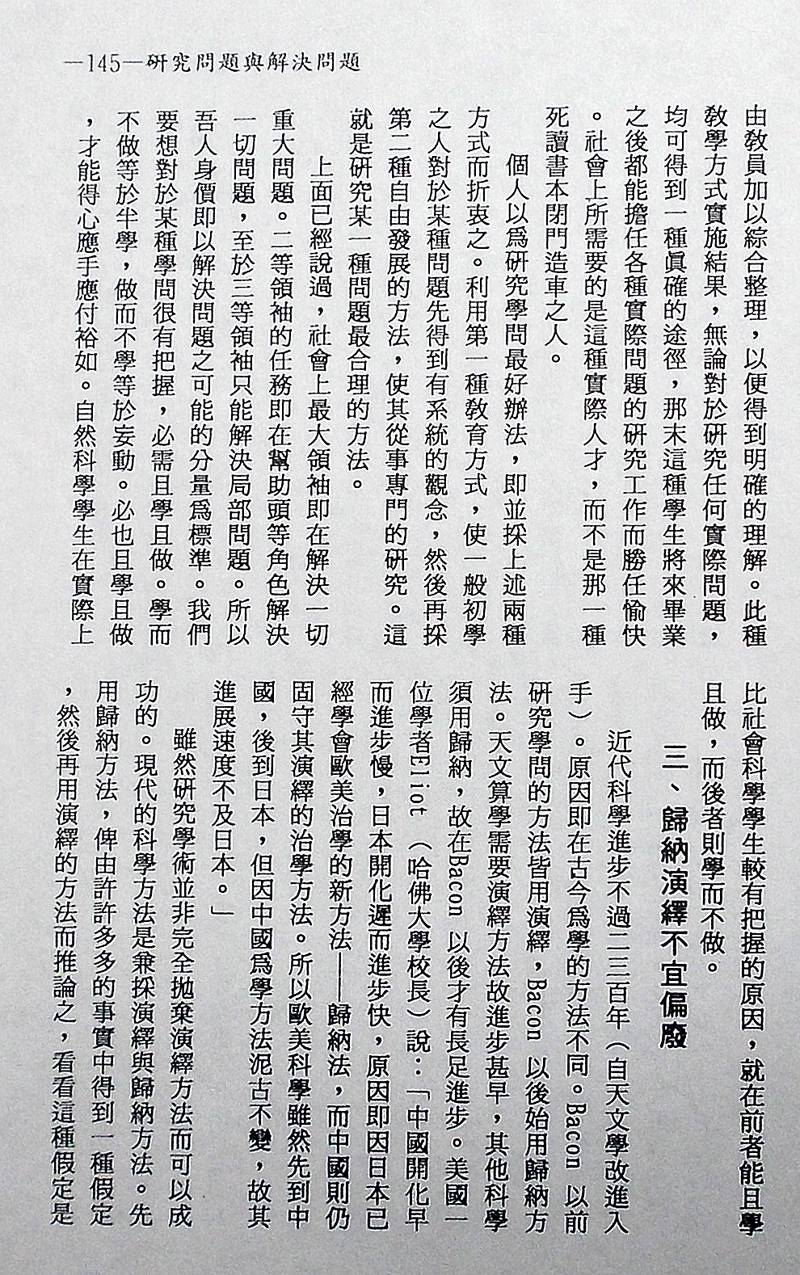 —145—研究問題與解決問題
由教員加以綜合整理，以便得到明確的理解。此種
教學方式實施結果，無論對於研究任何實際問題，
均可得到一種眞確的途徑，那末這種學生將來畢業
之後都能擔任各種實際問題的研究工作而勝任愉快
。社會上所需要的是這種實際人才，而不是那一種
死讀書本閉門造車之人。
個人以爲研究學問最好辦法，即並採上述兩種
方式而折衷之。利用第一種教育方式，使一般初學
之人對於某種問題先得到有系統的觀念，然後再採
第二種自由發展的方法，使其從事專門的研究。這
就是研究某一種問題最合理的方法。
上面已經說過，社會上最大領袖即在解決一切
重大問題。二等領袖的任務即在幫助頭等角色解決
一切問題，至於三等領袖只能解決局部問題。所以
吾人身價即以解決問題之可能的分量爲標準。我們
要想對於某種學問很有把握，必需且學且做。學而
不做等於半學，做而不學等於妄動。必也且學且做
，才能得心應手應付裕如。自然科學學生在實際上
比社會科學學生較有把握的原因，就在前者能且學
且做，而後者則學而不做。
三、歸納演繹不宜偏廢
近代科學進步不過二三百年（自天文學改進入
手）。原因即在古今爲學的方法不同。Bacon 以前
研究學問的方法皆用演繹，Bacon 以後始用歸納方
法。天文算學需要演繹方法故進步甚早，其他科學
須用歸納，故在Bacon 以後才有長足進步。美國一
位學者Eliot （哈佛大學校長）說：「中國開化早
而進步慢，日本開化遲而進步快，原因即因日本已
經學會歐美治學的新方法——歸納法，而中國則仍
固守其演繹的治學方法。所以歐美科學雖然先到中
國，後到日本，但因中國爲學方法泥古不變，故其
進展速度不及日本。」
雖然研究學術並非完全拋棄演繹方法而可以成
功的。現代的科學方法是兼採演繹與歸納方法。先
用歸納方法，俾由許許多多的事實中得到一種假定
，然後再用演繹的方法而推論之，看看這種假定是